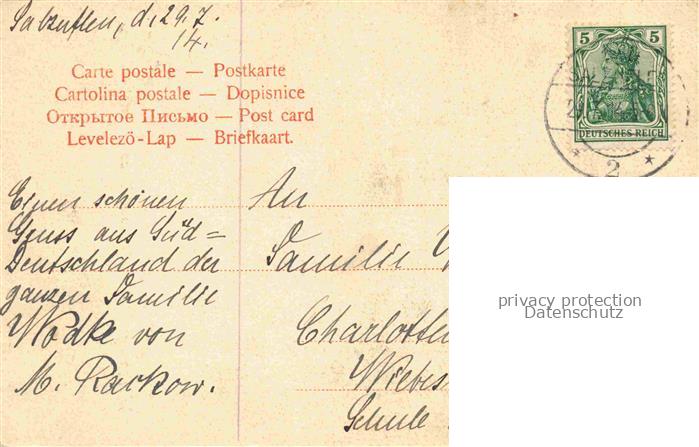 Salzuflen, d. 29.7.
14.
5 5
DEUTSCHES REICH
2
Carte postale — Postkarte
Cartolina postale — Dopisnice
Открытое Письмо — Post card
Levelező-Lap — Briefkaart.
Einen schönen
Gruss aus Süd=
Deutschland der
ganzen Familie
Wodke von
M. Rackow.
An
Familie W
Charlotten
Wiebes
Schule
privacy protection
Datenschutz